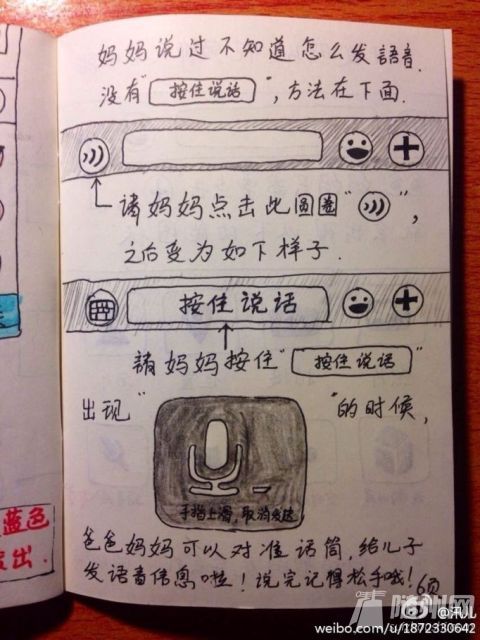 妈妈说过不知道怎么发語音.
没有"按住说话",方法在下面.
请妈妈点击此圆圈" ",
之后变为如下样子.
按住说话
請妈妈按住"按住说话"
出现" "的时候,
手指上滑,取消发送
爸爸妈妈可以对准话筒,给儿子
发语音信息啦!说完记得松手哦!
蓝色
出.
随州网
weibo.com/u/1872330642